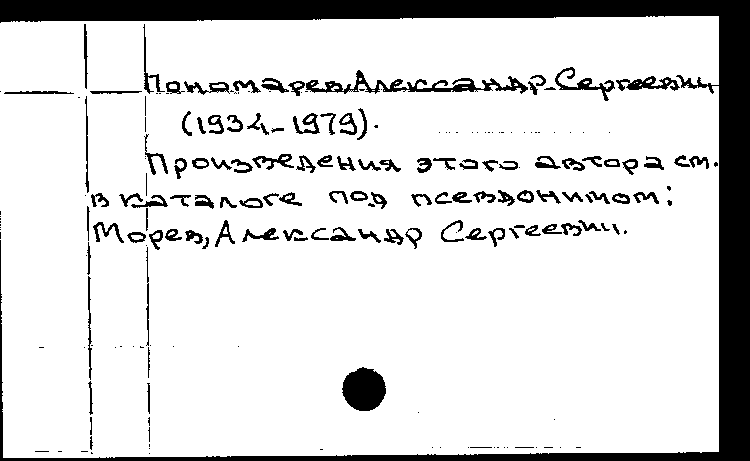 Пономарев, Александр Сергеевич
(1934-1979).
Произведения этого автора см.
в каталоге под псевдонимом:
Морев, Александр Сергеевич.